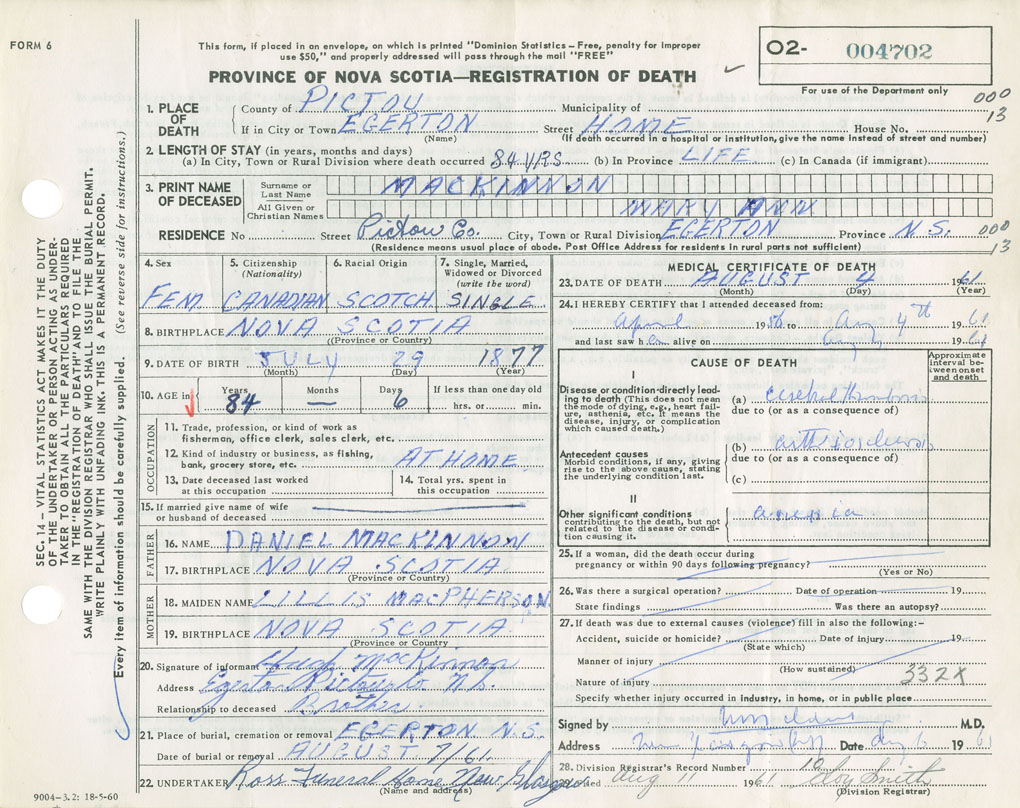 FORM 6
This form, if placed in an envelope, on which is printed "Dominion Statistics – Free, penalty for improper
use $50," and properly addressed will pass through the mail "FREE"
PROVINCE OF NOVA SCOTIA—REGISTRATION OF DEATH
O2- 004702
For use of the Department only
000
13
1. PLACE OF DEATH
County of PICTOU Municipality of
If in City or Town EGERTON Street HOME House No.
(Name) (If death occurred in a hospital or institution, give the name instead of street and number)
2. LENGTH OF STAY (in years, months and days)
(a) In City, Town or Rural Division where death occurred 84 YRS (b) In Province LIFE (c) In Canada (if immigrant)
3. PRINT NAME OF DECEASED
Surname or Last Name MACKINNON
All Given or Christian Names MARY ANN
RESIDENCE No Street Pictou Co. City, Town or Rural Division EGERTON Province N.S.
000
13
(Residence means usual place of abode. Post Office Address for residents in rural parts not sufficient)
4. Sex 5. Citizenship (Nationality) 6. Racial Origin 7. Single, Married, Widowed or Divorced (write the word)
FEM CANADIAN SCOTCH SINGLE
8. BIRTHPLACE NOVA SCOTIA
(Province or Country)
9. DATE OF BIRTH JULY 29 1877
(Month) (Day) (Year)
10. AGE in Years Months Days If less than one day old
84 — 6 hrs. or min.
OCCUPATION
11. Trade, profession, or kind of work as
fisherman, office clerk, sales clerk, etc.
12. Kind of industry or business, as fishing,
bank, grocery store, etc. AT HOME
13. Date deceased last worked
at this occupation
14. Total yrs. spent in
this occupation
15. If married give name of wife
or husband of deceased
FATHER
16. NAME DANIEL MACKINNON
17. BIRTHPLACE NOVA SCOTIA
(Province or Country)
MOTHER
18. MAIDEN NAME LILLIS MACPHERSON
19. BIRTHPLACE NOVA SCOTIA
(Province or Country)
20. Signature of informant Hugh MacKinnon
Address Egerton Pictou Co N.S.
Relationship to deceased Brother
21. Place of burial, cremation or removal EGERTON N.S.
Date of burial or removal AUGUST 7/61
22. UNDERTAKER Ross Funeral Home New Glasgow
(Name and address)
MEDICAL CERTIFICATE OF DEATH
23. DATE OF DEATH AUGUST 4 1961
(Month) (Day) (Year)
24. I HEREBY CERTIFY that I attended deceased from:
April 1956 to Aug 4th 1961
and last saw h er alive on Aug 4 1961
CAUSE OF DEATH
Approximate interval between onset and death
I
Disease or condition directly leading to death (This does not mean the mode of dying, e.g., heart failure, asthenia, etc. It means the disease, injury, or complication which caused death.)
(a) cerebral thrombosis
due to (or as a consequence of)
Antecedent causes
Morbid conditions, if any, giving rise to the above cause, stating the underlying condition last.
(b) arteriosclerosis
due to (or as a consequence of)
(c)
II
Other significant conditions
contributing to the death, but not related to the disease or condition causing it.
anemia
25. If a woman, did the death occur during
pregnancy or within 90 days following pregnancy?
(Yes or No)
26. Was there a surgical operation? Date of operation 19
State findings Was there an autopsy?
27. If death was due to external causes (violence) fill in also the following:-
Accident, suicide or homicide? Date of injury 19
(State which)
Manner of injury
(How sustained)
Nature of injury 332X
Specify whether injury occurred in industry, in home, or in public place
Signed by M.D.
Address Date Aug 1961
28. Division Registrar's Record Number
Filed Aug 11 1961 Smith
(Division Registrar)
9004-3.2: 18-5-60
SEC. 14 – VITAL STATISTICS ACT MAKES IT THE DUTY
OF THE UNDERTAKER OR PERSON ACTING AS UNDER-
TAKER TO OBTAIN ALL THE PARTICULARS REQUIRED
IN THE "REGISTRATION OF DEATH" AND TO FILE THE
SAME WITH THE DIVISION REGISTRAR WHO SHALL ISSUE THE BURIAL PERMIT.
WRITE PLAINLY WITH UNFADING INK. THIS IS A PERMANENT RECORD.
Every item of information should be carefully supplied. (See reverse side for instructions.)